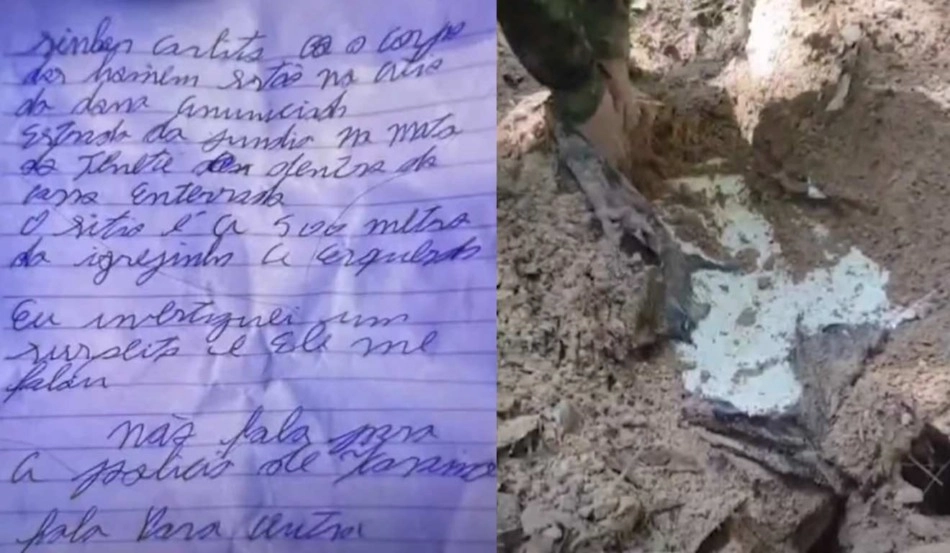 sinhor carlito ca o corpo
dos homem estão no citio
da dona anunciad
Estrada da fundio na mata
do Tenete dentra do
carro Enterrado
O sitio é a 500 metro
da igrejinha a Esquerda
Eu investiguei um
suspeito e Ele me
falou
não fala para
a policia de
fala para outra